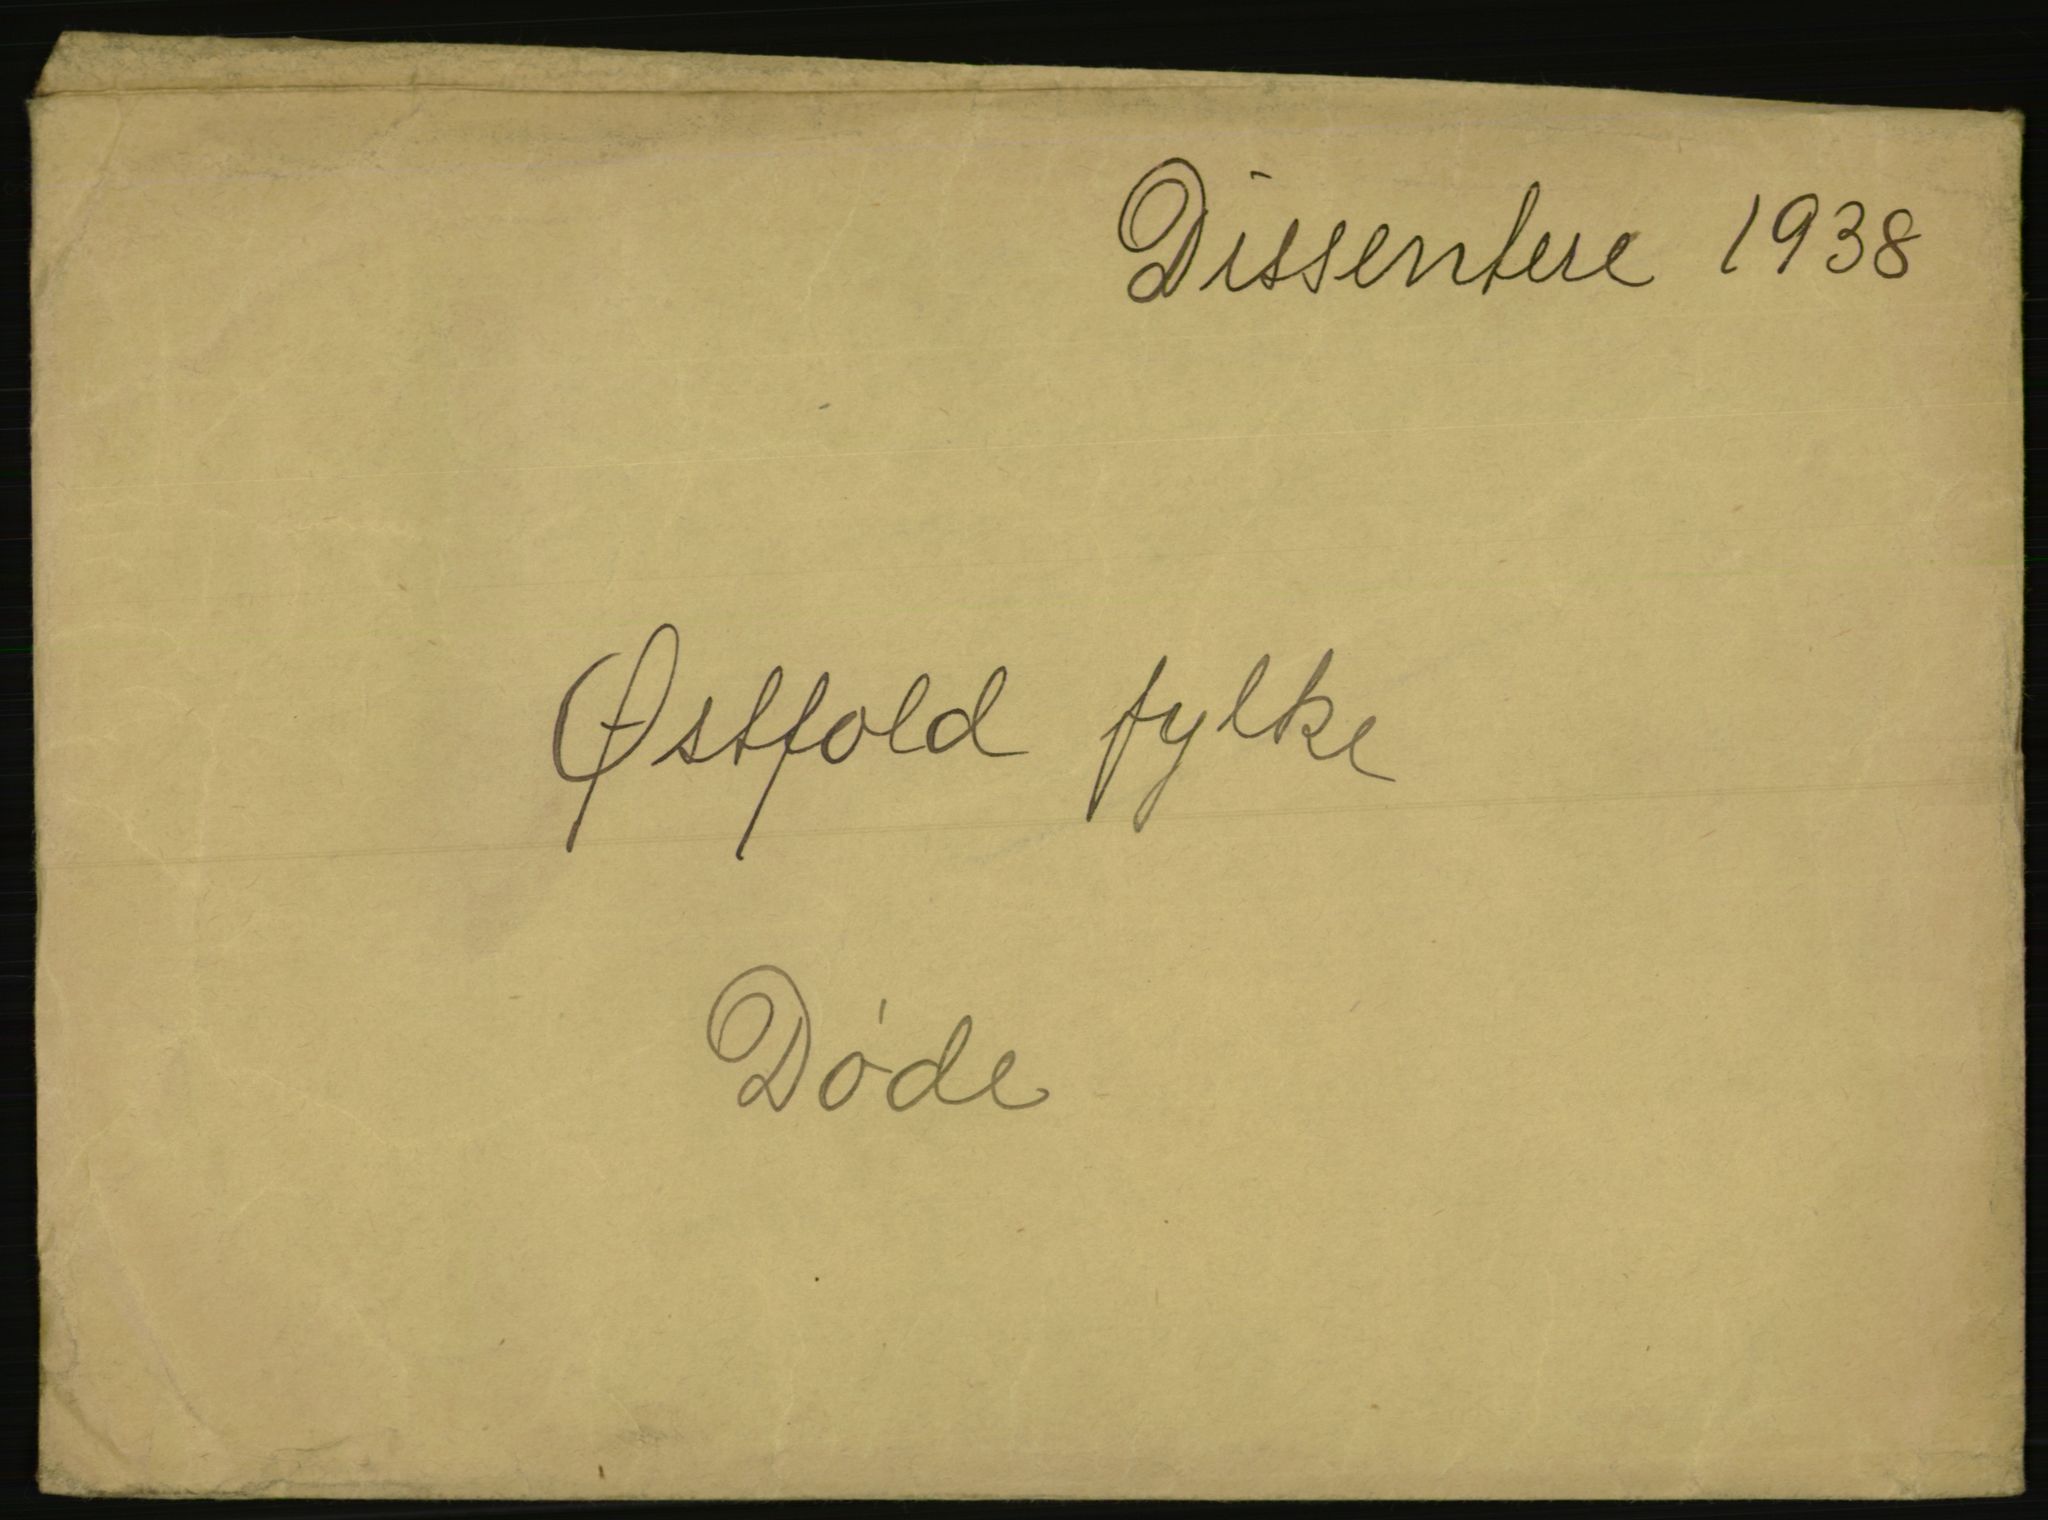 Dissentere 1938
Østfold fylke
Døde